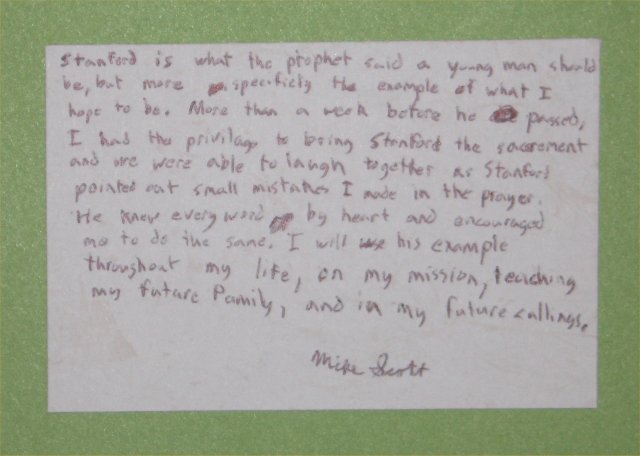 Stanford is what the prophet said a young man should
be, but more specificly the example of what I
hope to be. More than a week before he passed,
I had the privilage to bring Stanford the sacrement
and we were able to laugh together as Stanford
pointed out small mistakes I made in the prayer.
He knew every word by heart and encouraged
me to do the same. I will use his example
throughout my life, on my mission, teaching
my future family, and in my future callings.
Mike Scott